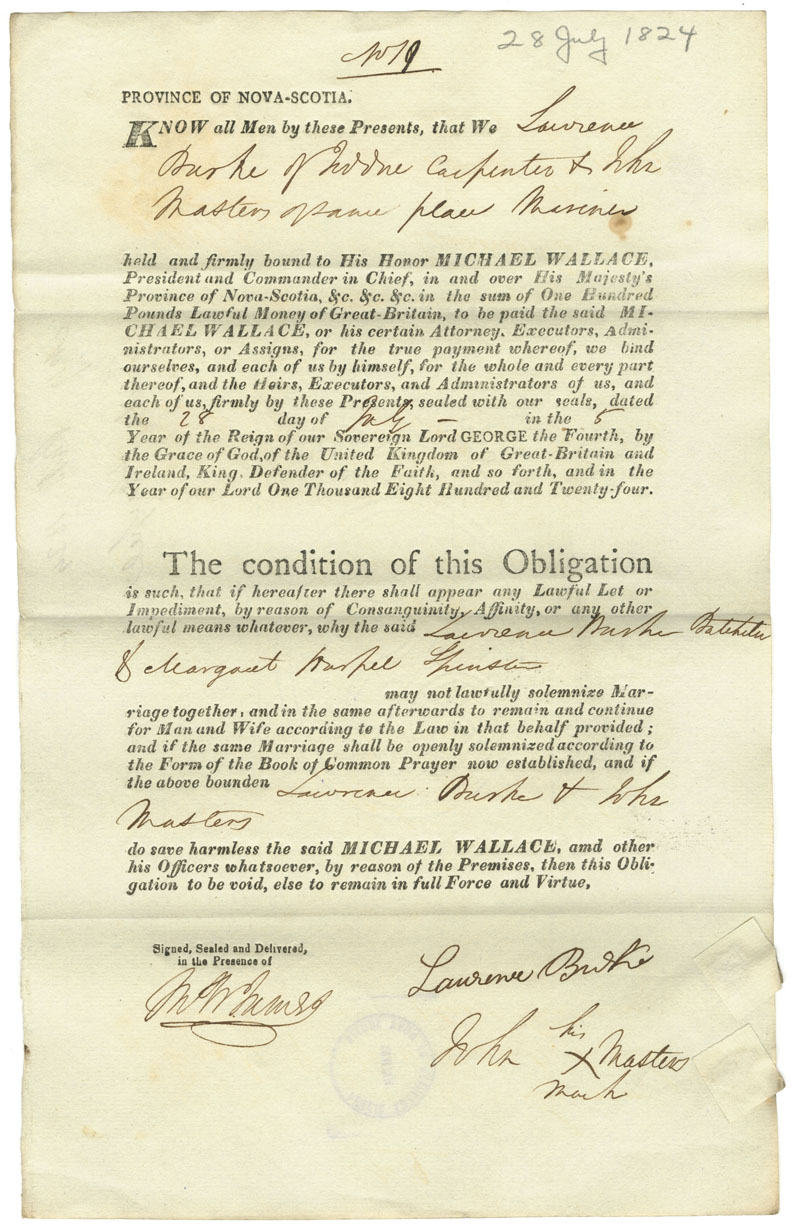 28 July 1824
PROVINCE OF NOVA-SCOTIA.
KNOW all Men by these Presents, that We Lawrence
Burke of Carpenter & John
Masters of same place Mariner
held and firmly bound to His Honor MICHAEL WALLACE,
President and Commander in Chief, in and over His Majesty's
Province of Nova-Scotia, &c. &c. &c. in the sum of One Hundred
Pounds Lawful Money of Great-Britain, to be paid the said MI-
CHAEL WALLACE, or his certain Attorney, Executors, Admi-
nistrators, or Assigns, for the true payment whereof, we bind
ourselves, and each of us by himself, for the whole and every part
thereof, and the Heirs, Executors, and Administrators of us, and
each of us, firmly by these Presents, sealed with our seals, dated
the 28 day of July - in the 5
Year of the Reign of our Sovereign Lord GEORGE the Fourth, by
the Grace of God, of the United Kingdom of Great-Britain and
Ireland, King, Defender of the Faith, and so forth, and in the
Year of our Lord One Thousand Eight Hundred and Twenty-four.
The condition of this Obligation
is such, that if hereafter there shall appear any Lawful Let or
Impediment, by reason of Consanguinity, Affinity, or any other
lawful means whatever, why the said Lawrence Burke Batchelor
& Margaret Spinster
may not lawfully solemnize Mar-
riage together, and in the same afterwards to remain and continue
for Man and Wife according to the Law in that behalf provided;
and if the same Marriage shall be openly solemnized according to
the Form of the Book of Common Prayer now established, and if
the above bounden Lawrence Burke & John
Masters
do save harmless the said MICHAEL WALLACE, amd other
his Officers whatsoever, by reason of the Premises, then this Obli-
gation to be void, else to remain in full Force and Virtue,
Signed, Sealed and Delivered,
in the Presence of
Laurence Burke
his
John X Masters
mark